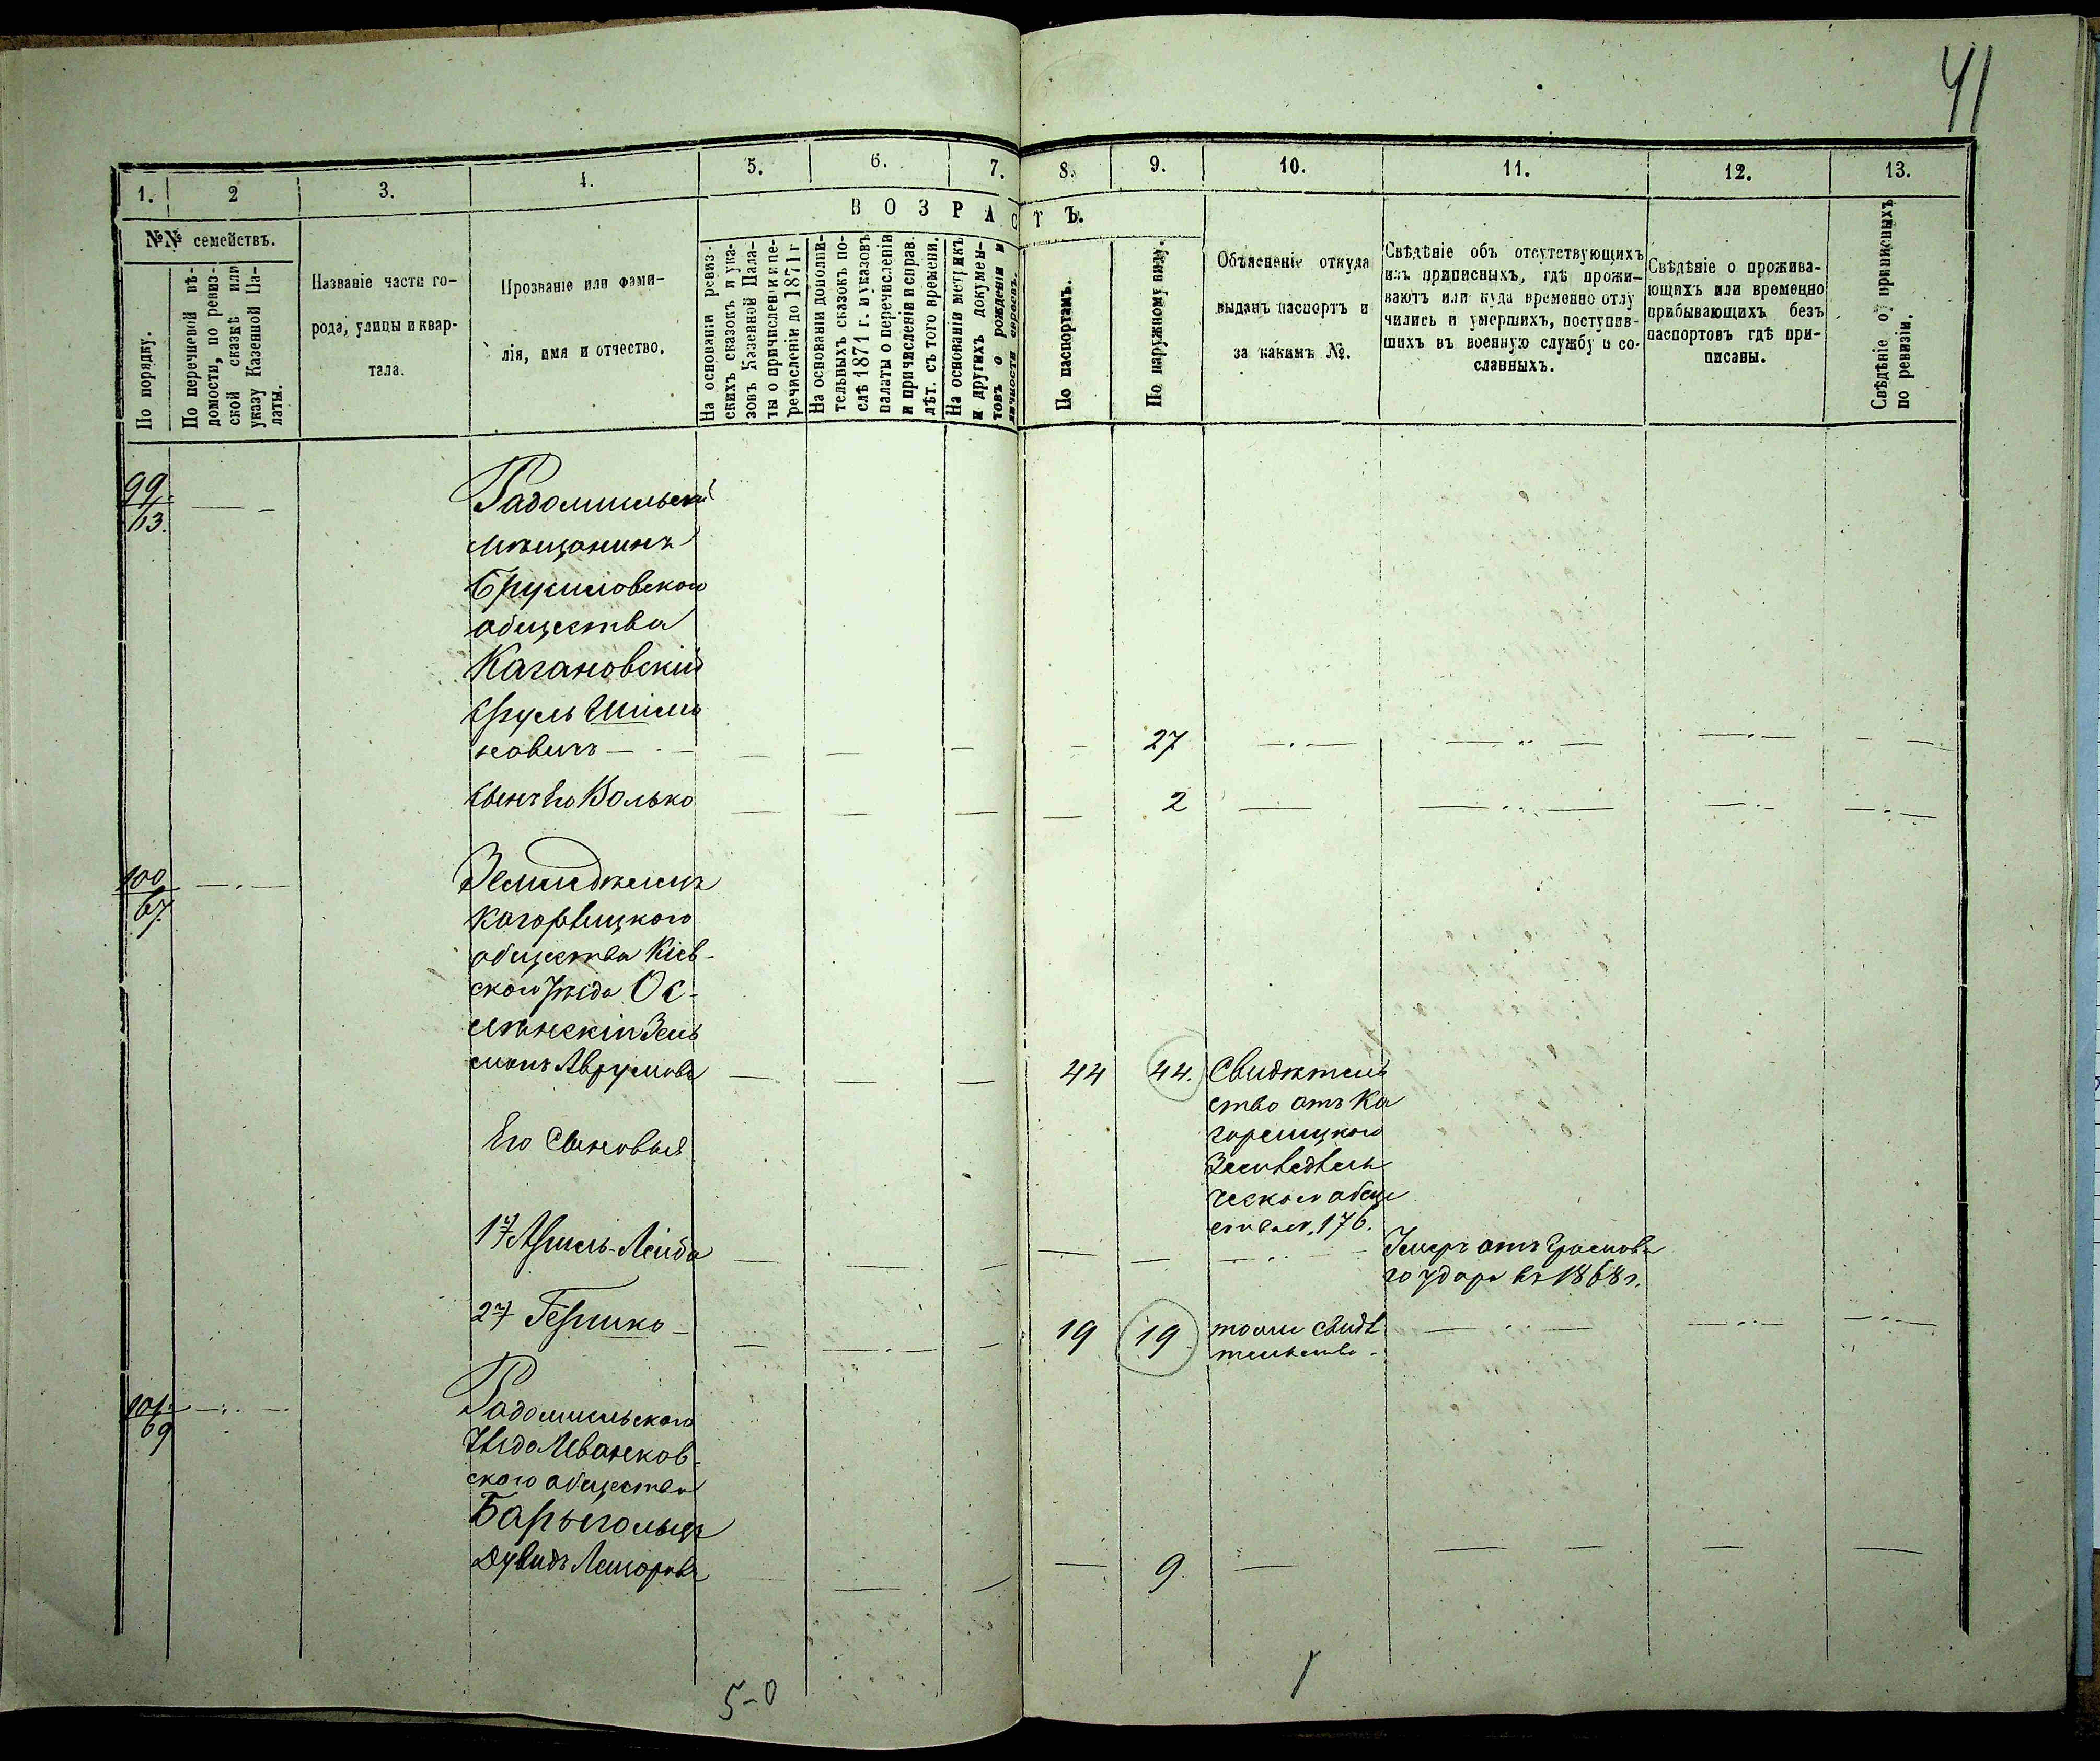 41
1.
2
3.
4.
5.
6.
7.
8.
9.
10.
11.
12.
13.
№№ семействъ.
По порядку.
По перечневой вѣ-
домости, по ревиз-
ской сказкѣ или
указу Казенной Па-
латы.
Названіе части го-
рода, улицы и квар-
тала.
Прозваніе или фами-
лія, имя и отчество.
ВОЗРАСТЪ.
На основаніи ревиз-
скихъ сказокъ и ука-
зовъ Казенной Пала-
ты о причисленіи и пе-
речисленіи до 1871 г
На основаніи дополни-
тельныхъ сказокъ по-
слѣ 1871 г. и указовъ
палаты о перечисленіи
и причисленіи и справ.
лѣт. съ того времени.
На основаніи метрикъ
и другихъ докумен-
товъ о рожденіи и
личности евреевъ.
По паспортамъ.
По наружному виду.
Объясненіе откуда
выданъ паспортъ и
за какимъ №.
Свѣдѣніе объ отсутствующихъ
изъ приписныхъ, гдѣ прожи-
ваютъ или куда временно отлу
чились и умершихъ, поступив-
шихъ въ военную службу и со-
сланныхъ.
Свѣдѣніе о прожива-
ющихъ или временно
прибывающихъ безъ
паспортовъ гдѣ при-
писаны.
Свѣдѣніе о приписныхъ
по ревизіи.
99
113.
Радомысльскій
мѣщанинъ
Брусиловского
общества
Кагановскій
Срулъ Шимо
новичъ
27
сынъ его Волько
2
100
67.
Земледѣлецъ
Кагорлицкого
общества Кіев-
ского уѣзда Ос-
лянскій Зель
манъ Аврумовъ
44
44.
Свидѣтель
ство отъ Ка
горлицкого
Земледѣль
ческого обще
ства №. 176.
Его Сыновья
1й Лейба
Умеръ отъ Громова
го удара въ 1868 г.
2й Гершко
19
19
тоже свидѣ
тельство.
101.
69
Радомысльского
Уѣзда Иванков-
ского общества
Дувидъ Лейзоровъ
9.
5-0
1